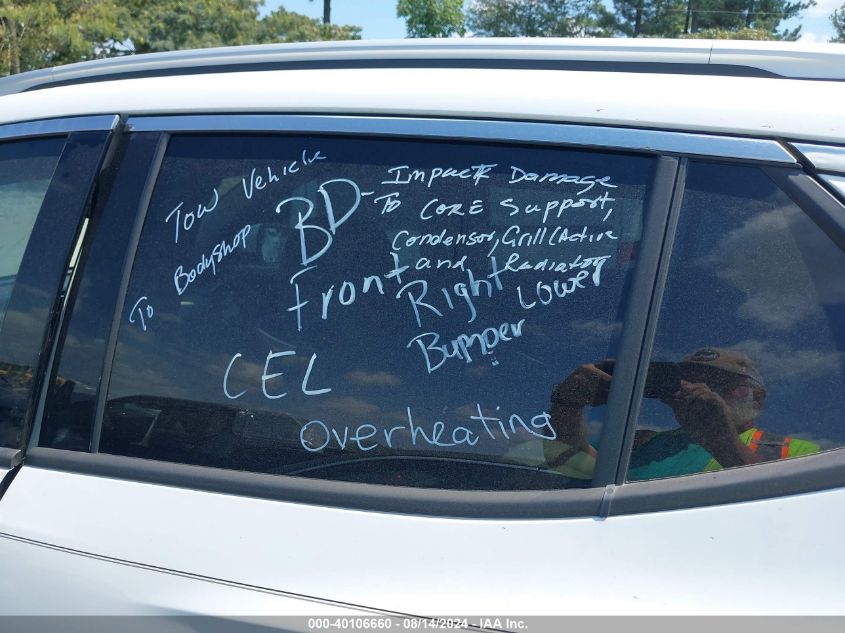 Tow Vehicle
To Bodyshop
BD- Impact Damage
To CORE Support,
Condensor, Grill (Active
and Radiator
Front Right Lower
Bumper
CEL
Overheating
000-40106660 - 08/14/2024 - IAA Inc.